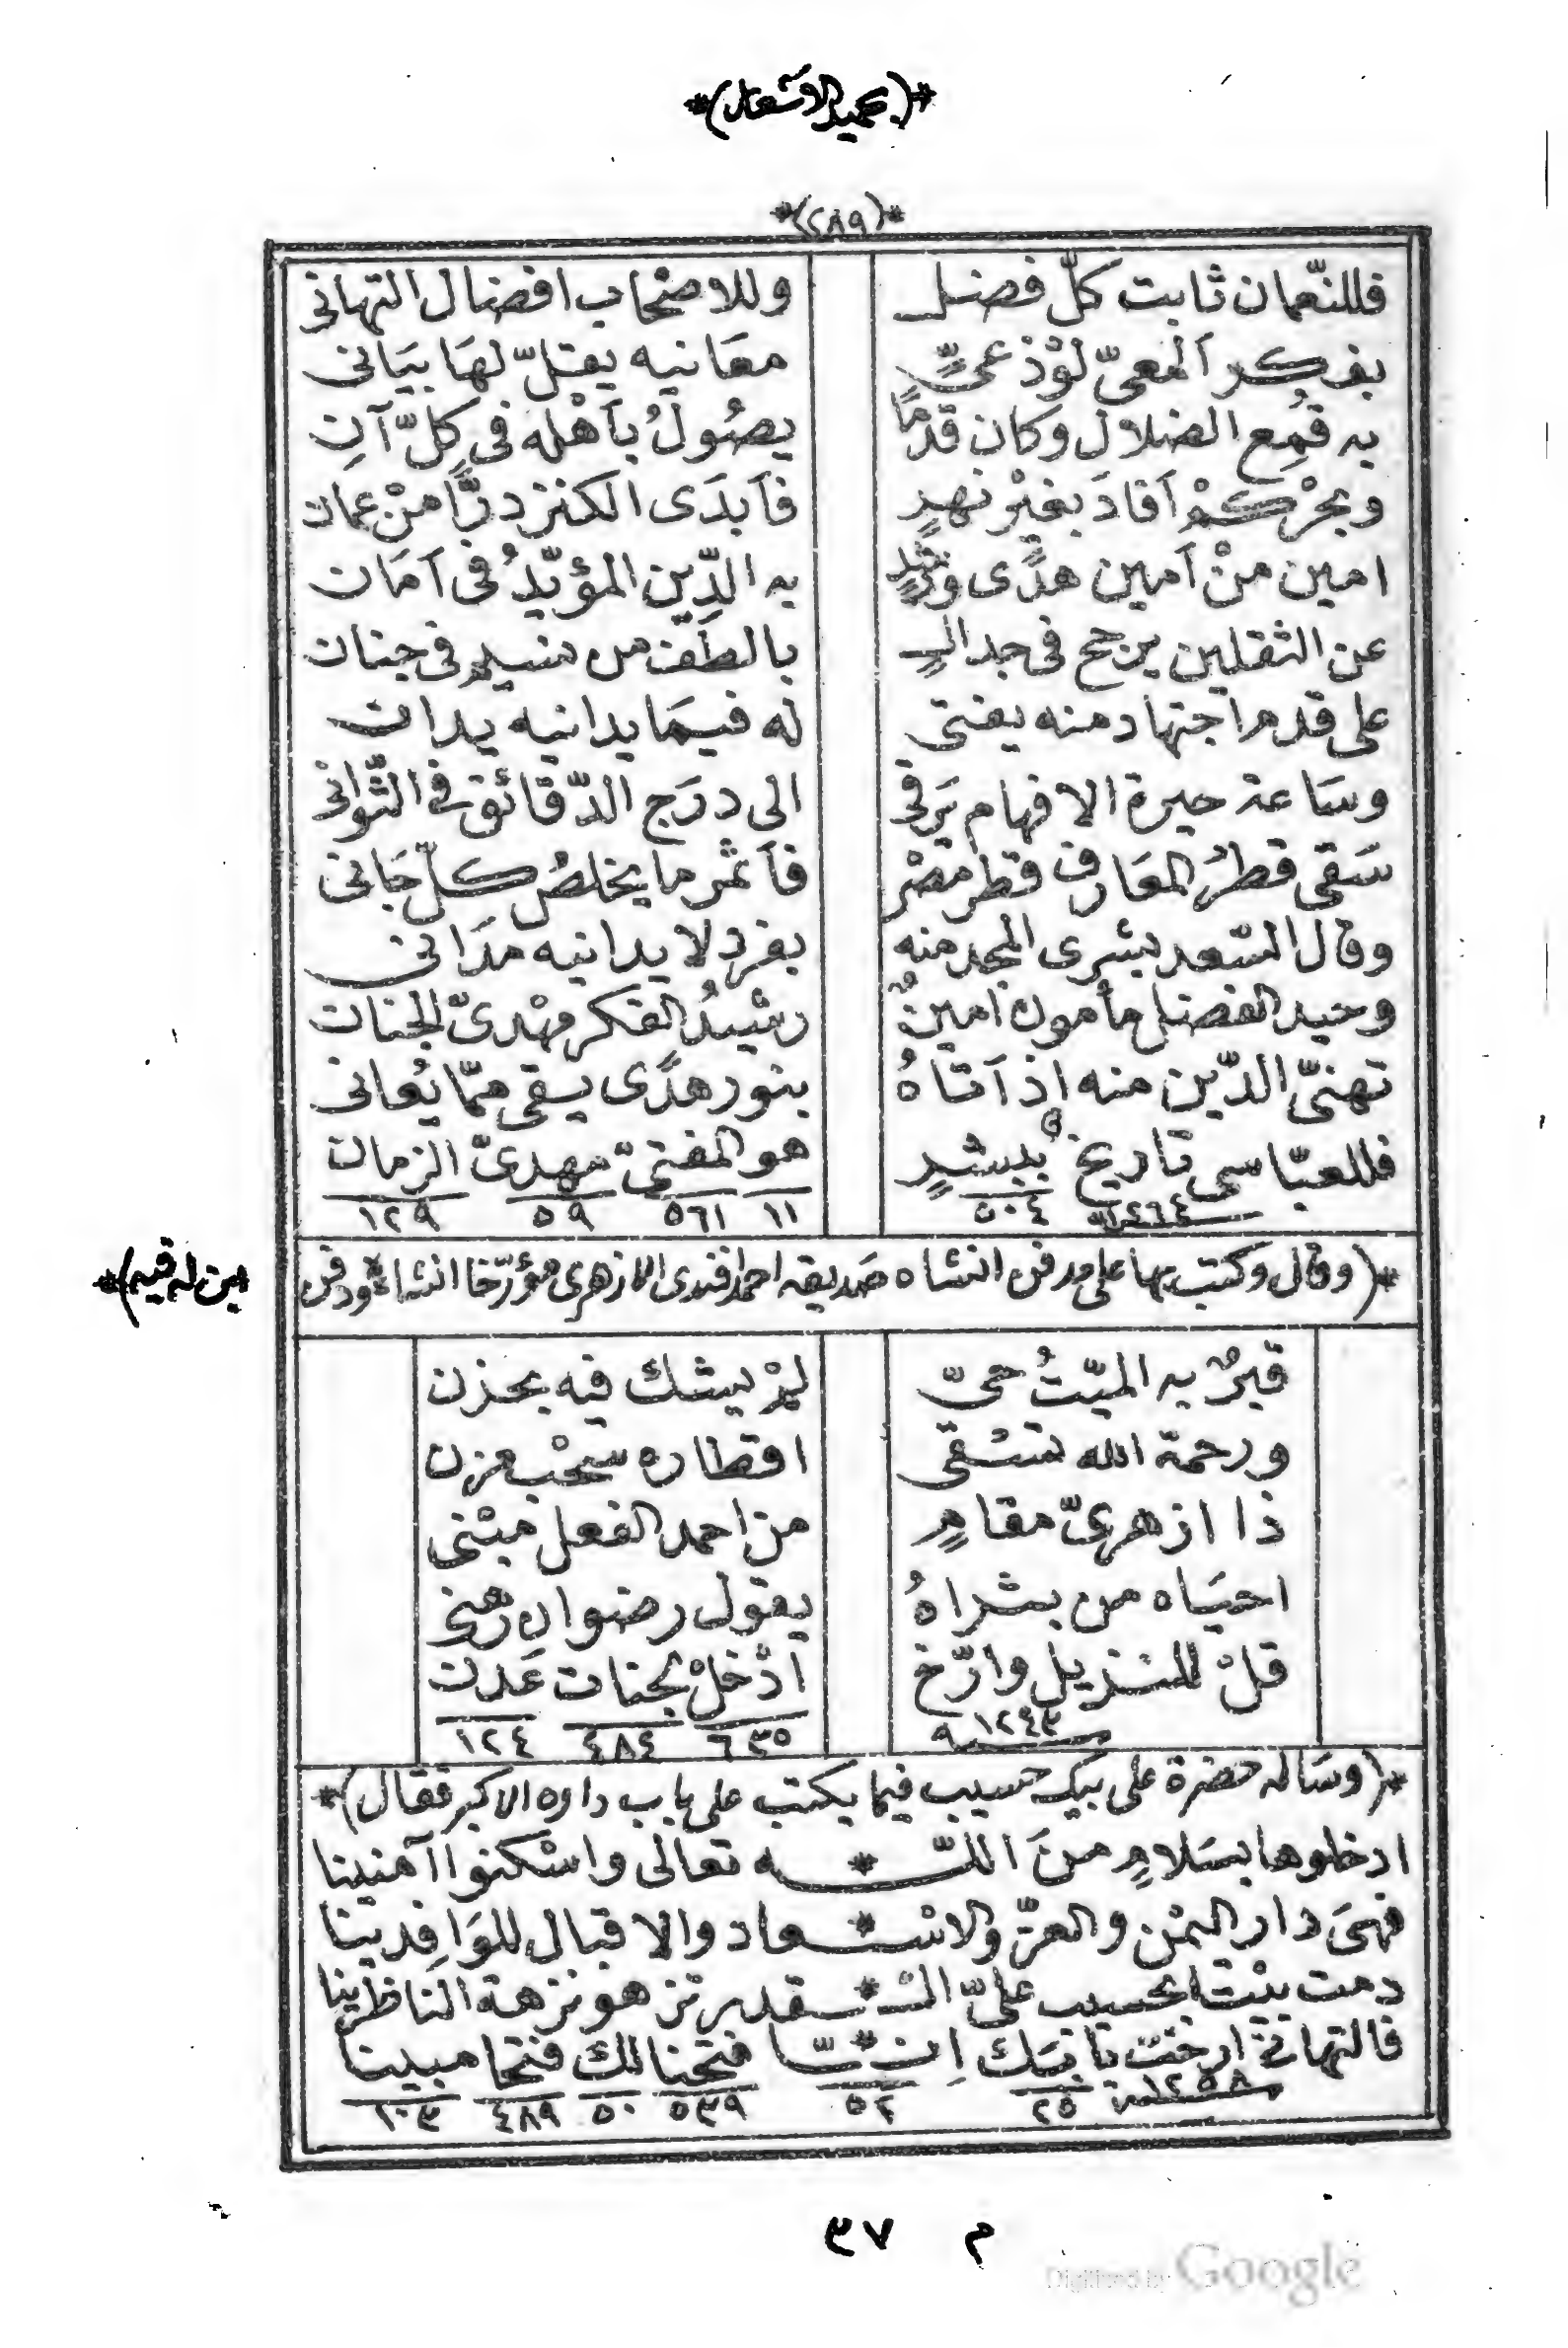 *(جميد الاشعار)*
*(٢٨٩)*
فللنّعمان ثابت كلّ فضل وللاصحاب افضال التهانى
بفكر اَلمعىّ لَوْذعىٍّ معَانيه يقلّ لهَا بيَانى
به قُمِع الضلال وكان قدْمًا يصُولُ بأهْله فى كلّ آنِ
وبحرْ كمْ اَفادَ بغيْر نهرٍ فاَبدَى الكنز درًّا منْ عمان
امين منْ اَمين هدًى ورُشْدٍ به الدّين المؤيّدُ فى اَمَان
عن الثقلين يرجح فى جدالٍ بالطَف من نسيم فى جنان
على قدم اجتهاد منه يفتى له فيمَا يدانيه يدان
وسَاعة حيرة الافهام يَرقى الى درَج الدّقائق فى الثّوانى
سَقى قطرُ المعَارف قطر مصْر فاَثمر ما يخلصُ كلّ جَانى
وقال السّعد بشرى المجد منه بفردٍ لا يدانيه مدَانى
وحيد الفضل مأمون امينٌ رشيدُ الفكر مهْدىّ الجنان
تهنّى الدّين منه اذ اَتاهُ بنور هدًى يقى ممّا يُعانى
فللعبّاسى تاريخ ببشرٍ هو المفتىّ مهدىّ الزمان
١٢٦٤ ٥٠٤ ١١ ٥٦١ ٥٩ ١٢٩
*(وقال وكتب بها على مدفن انشاه صَديقه احمد افندى الازهرى مؤرّخا انشاءه ودفن
ابن له فيه)*
قبرٌ به الميّتُ حىّ لمْ يشك فيه بحزن
ورحمة الله تسْقى اقطاره سحْب مزن
ذا ازهرىّ مقامٍ من احمد الفعل مبْنى
احيَاه من بشراهُ يقول رضوان
قلْ للنزيل وارّخ ادْخلْ بجنات عَدن
١٢٤٣ ٦٣٥ ٤٨٤ ١٢٤
*(وسَاله حضرة على بيك حسيب فيما يكتب على باب داره الاكبر فقال)*
ادخلوها بسَلامٍ منَ اللّـ * ـه تعالى واسْكنوا آمنينا
فهىَ دار اليمْن والعزّ والاسْـ * ـعاد والاقبال للوَافِدينا
دمت بيْت الحسيب علىّ الـ * ـقدر تزهو نزهة الناظرينا
فالتهانى ارخت بابَك اِنّـ * ـا فتحنا لك فتحا مبينا
١٢٥٨ سنة ٢٥ ٥٢ ٥٣٩ ٥٠ ٤٨٩ ١٠٣
م ٣٧
Digitized by Google